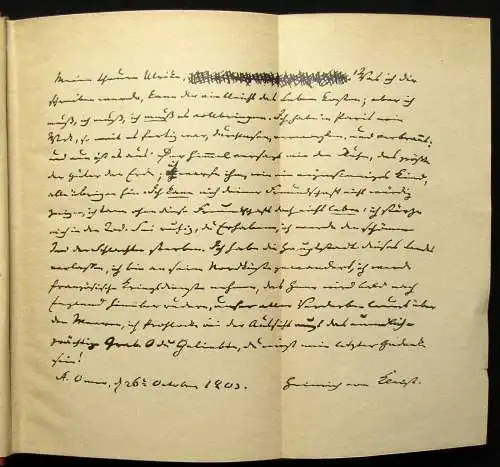 Meine theure Ulrike! Was ich dir
schreiben werde, kann dir vielleicht das Leben kosten; aber ich
muß, ich muß, ich muß es vollbringen. Ich habe in Paris mein
Werk, so weit es fertig war, durchlesen, verworfen, und verbrannt:
und nun ist es aus. Der Himmel versagt mir den Ruhm, das größte
der Güter der Erde; ich werfe ihm, wie ein eigensinniges Kind,
alle übrigen hin. Ich kann mich deiner Freundschaft nicht würdig
zeigen, ich kann ohne diese Freundschaft doch nicht leben: ich stürze
mich in den Tod. Sei ruhig, du Erhabene, ich werde den schönen
Tod der Schlachten sterben. Ich habe die Hauptstadt dieses Landes
verlassen, ich bin an seine Nordküste gewandert, ich werde
französische Kriegsdienste nehmen, das Heer wird bald nach
England hinüber rudern, unser aller Verderben lauert über
den Meeren, ich frohlocke bei der Aussicht auf das unendlich-
prächtige Grab. O du Geliebte, du wirst mein letzter Gedanke
sein!
St. Omer, d 26t October 1803. Heinrich von Kleist.